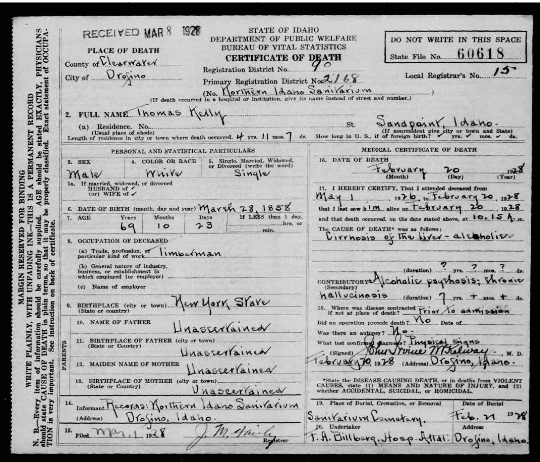 RECEIVED MAR 8 1928
STATE OF IDAHO
DEPARTMENT OF PUBLIC WELFARE
BUREAU OF VITAL STATISTICS
CERTIFICATE OF DEATH
DO NOT WRITE IN THIS SPACE
State File No. 60618
PLACE OF DEATH
County of Clearwater
City of Orofino
Registration District No. 90
Primary Registration District No. 2168
Local Registrar's No. 15
(No. Northern Idaho Sanitarium
(If death occurred in a hospital or institution, give its name instead of street and number.)
2. FULL NAME Thomas Kelly
(a) Residence. No. St. Sandpoint, Idaho.
(Usual place of abode) (If nonresident give city or town and State)
Length of residence in city or town where death occurred. 4 yrs 11 mos 7 ds. How long in U. S., if of foreign birth? yrs. mos. ds.
PERSONAL AND STATISTICAL PARTICULARS
3. SEX Male
4. COLOR OR RACE White
5. Single, Married, Widowed, or Divorced (write the word) Single
5a. If married, widowed, or divorced
HUSBAND of
(or) WIFE of
6. DATE OF BIRTH (month, day and year) March 28, 1858
7. AGE 69 10 23
If LESS than 1 day, hrs. or min.
8. OCCUPATION OF DECEASED
(a) Trade, profession, or particular kind of work Timberman
(b) General nature of industry, business, or establishment in which employed (or employer)
(c) Name of employer
9. BIRTHPLACE (city or town) New York State
(State or country)
PARENTS
10. NAME OF FATHER Unascertained
11. BIRTHPLACE OF FATHER (city or town)
(State or Country) Unascertained
12. MAIDEN NAME OF MOTHER Unascertained
13. BIRTHPLACE OF MOTHER (city or town)
(State or Country) Unascertained
14. Informant Records: Northern Idaho Sanitarium
(Address) Orofino, Idaho.
15. Filed Mar. 1, 1928
Registrar
MEDICAL CERTIFICATE OF DEATH
16. DATE OF DEATH February 20 1928
(Month) (Day) (Year)
17. I HEREBY CERTIFY, That I attended deceased from
May 1 1926, to February 20, 1928
that I last saw him alive on February 20 1928
and that death occurred, on the date stated above, at 10.15 A m.
The CAUSE OF DEATH* was as follows:
Cirrhosis of the liver - alcoholic
(duration) ? yrs. ? mos. ? ds.
CONTRIBUTORY Alcoholic psychosis; chronic
(Secondary) hallucinosis (duration) 7 yrs + mos + ds.
18. Where was disease contracted
if not at place of death? Prior to admission
Did an operation precede death? No Date of
Was there an autopsy? No.
What test confirmed diagnosis? Physical signs
(Signed) M. D.
February 20 1928 (Address) Orofino, Idaho.
*State the DISEASE CAUSING DEATH, or in deaths from VIOLENT CAUSES, state (1) MEANS AND NATURE OF INJURY, and (2) whether ACCIDENTAL, SUICIDAL, or HOMICIDAL.
19. Place of Burial, Cremation, or Removal Date of Burial
Sanitarium Cemetery. Feb. 21 1928
20. Undertaker Address
F. A. Billberg, Hosp. Attdt. Orofino, Idaho
MARGIN RESERVED FOR BINDING
WRITE PLAINLY, WITH UNFADING INK—THIS IS A PERMANENT RECORD
N. B.—Every item of information should be carefully supplied. AGE should be stated EXACTLY. PHYSICIANS should state CAUSE OF DEATH in plain terms, so that it may be properly classified. Exact statement of OCCUPATION is very important. See instructions on back of certificate.